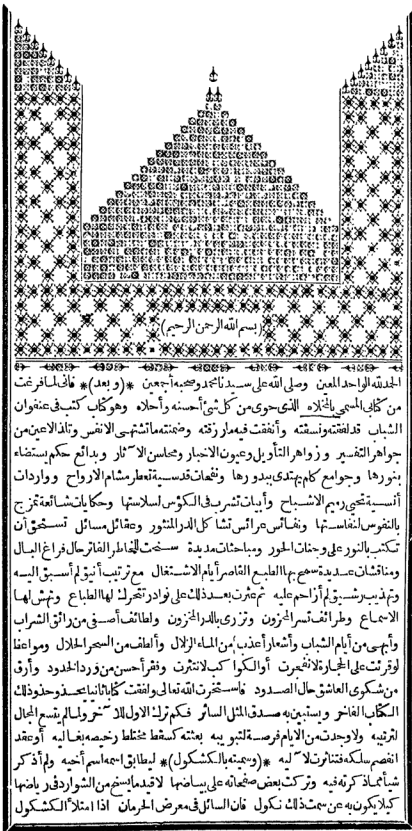 (بسم الله الرحمن الرحيم)
الحمد لله الواحد المعين وصلى الله على سيدنا محمد وصحبه أجمعين *(وبعد)* فانى لما فرغت
من كتابى المسمى بالمخلاه الذى حوى من كل شئ أحسنه وأحلاه وهو كتاب كتب فى عنفوان
الشباب قد لفقته ونسقته وأنفقت فيه ما رزقته وضمنته ما تشتهى الانفس وتلذ الاعين من
جواهر التفسير وزواهر التأويل وعيون الاخبار ومحاسن الآثار وبدائع حكم يستضاء
بنورها وجوامع كلم يهتدى ببدورها ونفحات قدسية تعطر مشام الارواح وواردات
أنسية تحيى رميم الاشباح وأبيات تشرب فى الكؤس لسلاستها وحكايات شائعة تمزج
بالنفوس لنفاستها ونفائس عرائس تشاكل الدر المنثور وعقائل مسائل تستحق أن
تكتب بالنور على وجنات الحور ومباحثات مديدة سنحت للخاطر الفاتر حال فراغ البال
ومناقشات عديدة سمح بها الطبع القاصر أيام الاشتغال مع ترتيب أنيق لم أسبق اليه
وتهذيب رشيق لم أزاحم عليه ثم عثرت بعد ذلك على نوادر تتحرك لها الطباع وتهش لها
الاسماع وطرائف تسر المحزون وتزرى بالدر المخزون ولطائف أصفى من رائق الشراب
وأبهى من أيام الشباب وأشعار أعذب من الماء الزلال وألطف من السحر الحلال ومواعظ
لو قرئت على الحجارة لانفجرت أو الكواكب لانتثرت وفقر أحسن من ورد الخدود وأرق
من شكوى العاشق حال الصدود فاستخرت الله تعالى ولفقت كتابا ثانيا يحذو حذو ذلك
الكتاب الفاخر ويستبين به صدق المثل السائر فكم ترك الاول للآخر ولما لم يتسع المجال
لترتيبه ولا وجدت من الايام فرصة لتبويبه بعثته كسفط مختلط رخيصه بغاليه أو عقد
انفصم سلكه فتناثرت لآليه *(وسميته بالكشكول)* ليطابق اسمه اسم أخيه ولم أذكر
شيأ مما ذكرته فيه وتركت بعض صفحاته على بياضها لاقيد ما يسنح من الشوارد فى رياضها
كيلا يكون به عن سمت ذلك نكول فان السائل فى معرض الحرمان اذا امتلأ الكشكول